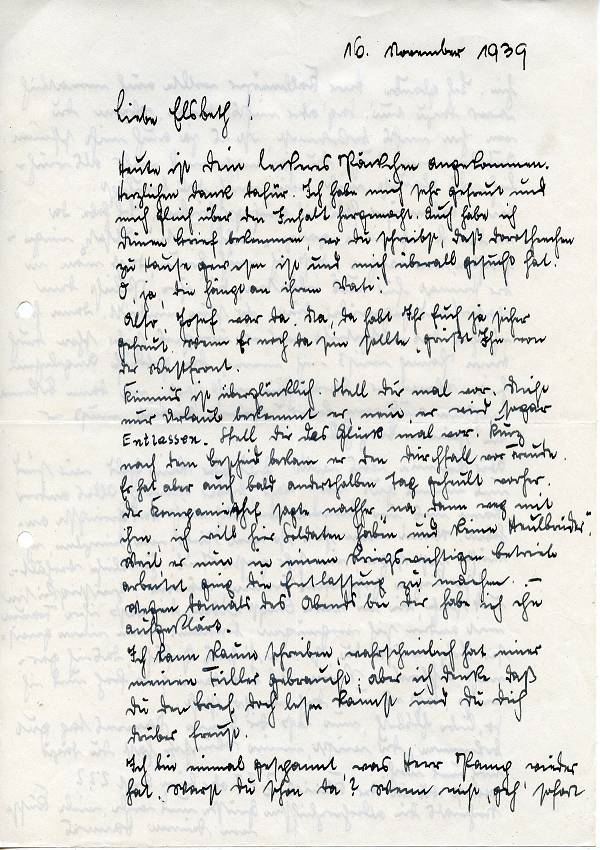 16. November 1939
Liebe Elsbeth!
Heute ist Dein leckeres Päckchen angekommen.
Herzlichen Dank dafür. Ich habe mich sehr gefreut und
mich gleich über den Inhalt hergemacht. Auch habe ich
Deinen Brief bekommen, wo Du schreibst, daß Dorothenchen
zu Hause gewesen ist und mich überall gesucht hat.
O, ja, die hängt an ihrem Vati.
Also, Josef war da. Na, da habt Ihr Euch ja sicher
gefreut. Wenn Er noch da sein sollte, grüßt Ihn von
der Westfront.
Kinnius ist überglücklich. Stell Dir mal vor. Nicht
nur Urlaub bekommt er, nein, er wird sogar
Entlassen. Stell Dir das Glück mal vor. Kurz
nach dem Bescheid bekam er den Durchfall vor Freude.
Er hat aber auch bald anderthalben Tag geheult vorher.
Der Kompaniechef sagte nachher, na, dann weg mit
ihm, ich will hier Soldaten haben und keine Heulbrüder".
Weil er nun in einem Kriegswichtigen Betriebe
arbeitet ging die Entlassung zu machen. –
Wegen damals des Abends bei Dir habe ich ihn
aufgeklärt.
Ich kann kaum schreiben, wahrscheinlich hat einer
meinen Füller gebraucht; aber ich denke daß
Du den Brief doch lesen kannst und Du Dich
darüber freust.
Ich bin einmal gespannt, was Herr Pamp wieder
hat. Warst Du schon da? Wenn nicht, geh' sofort